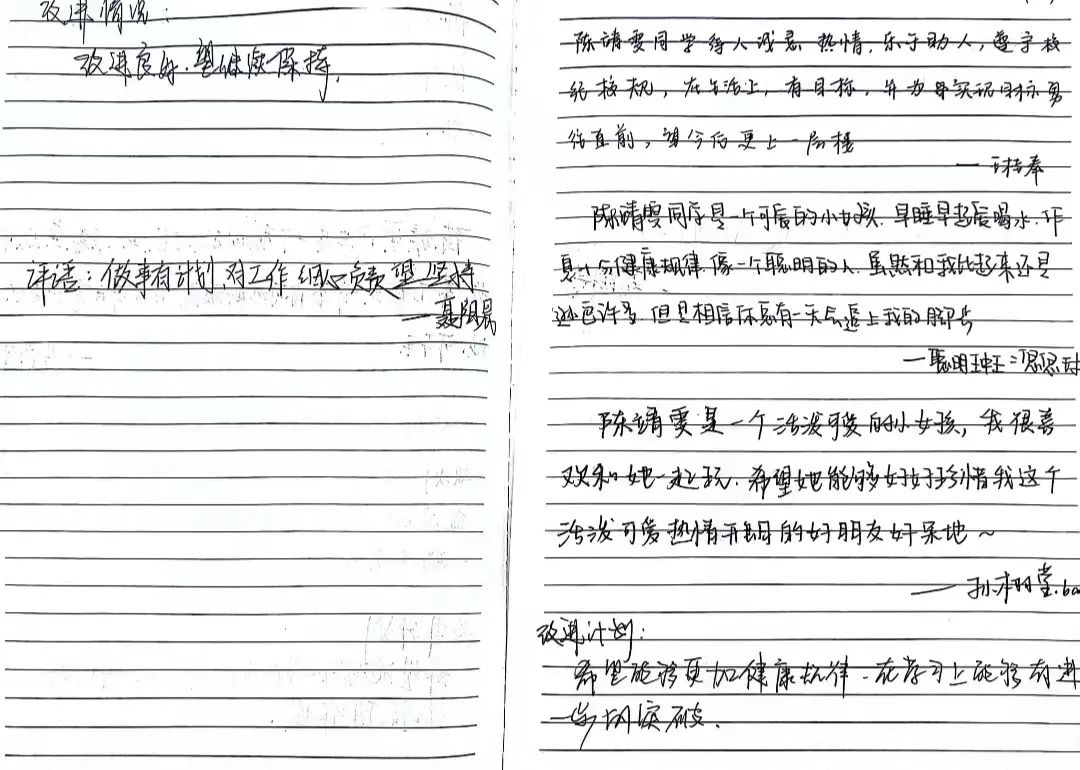 改进情况：
改进良好，望继续保持，
评语：做事有计划，对工作细心负责，望坚持
—聂阳晨
陈靖雯同学待人诚恳，热情，乐于助人，遵守校
纪校规，在生活上，有目标，并为实现目标勇
往直前，望今后更上一层楼
陈靖雯同学是一个可爱的小女孩，早睡早起晨喝水，作
息十分健康规律，像一个聪明的人，虽然和我比起来还是
逊色许多，但是相信你总有一天会追上我的脚步
陈靖雯是一个活泼可爱的小女孩，我很喜
欢和她一起玩，希望她能够好好珍惜我这个
活泼可爱热情开朗的好朋友好呆地～
改进计划：
希望能够更加健康规律，在学习上能够有进
一步的突破．